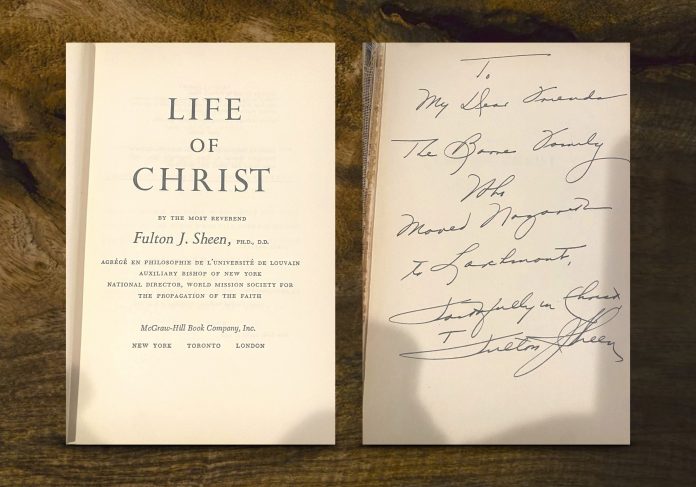 LIFE
OF
CHRIST
BY THE MOST REVEREND
Fulton J. Sheen, PH.D., D.D.
AGRÉGÉ EN PHILOSOPHIE DE L'UNIVERSITÉ DE LOUVAIN
AUXILIARY BISHOP OF NEW YORK
NATIONAL DIRECTOR, WORLD MISSION SOCIETY FOR
THE PROPAGATION OF THE FAITH
McGraw-Hill Book Company, Inc.
NEW YORK TORONTO LONDON
To
My Dear Friends
The Family
Who
Moved Nazareth
to Larchmont,
Faithfully in Christ
Fulton J Sheen